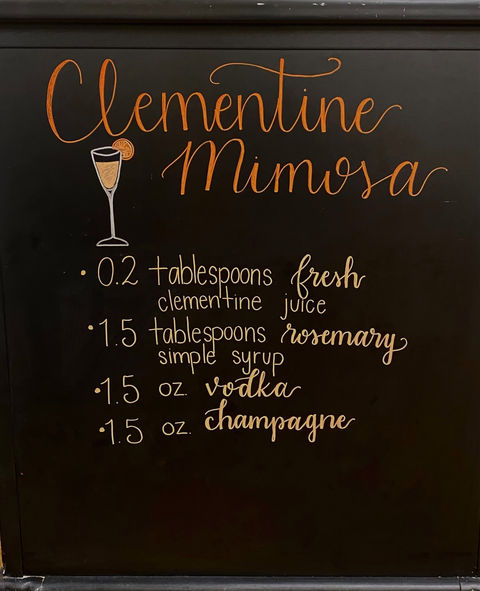 Clementine
Mimosa
• 0.2 tablespoons fresh
clementine juice
• 1.5 tablespoons rosemary
simple syrup
• 1.5 oz. vodka
• 1.5 oz. champagne